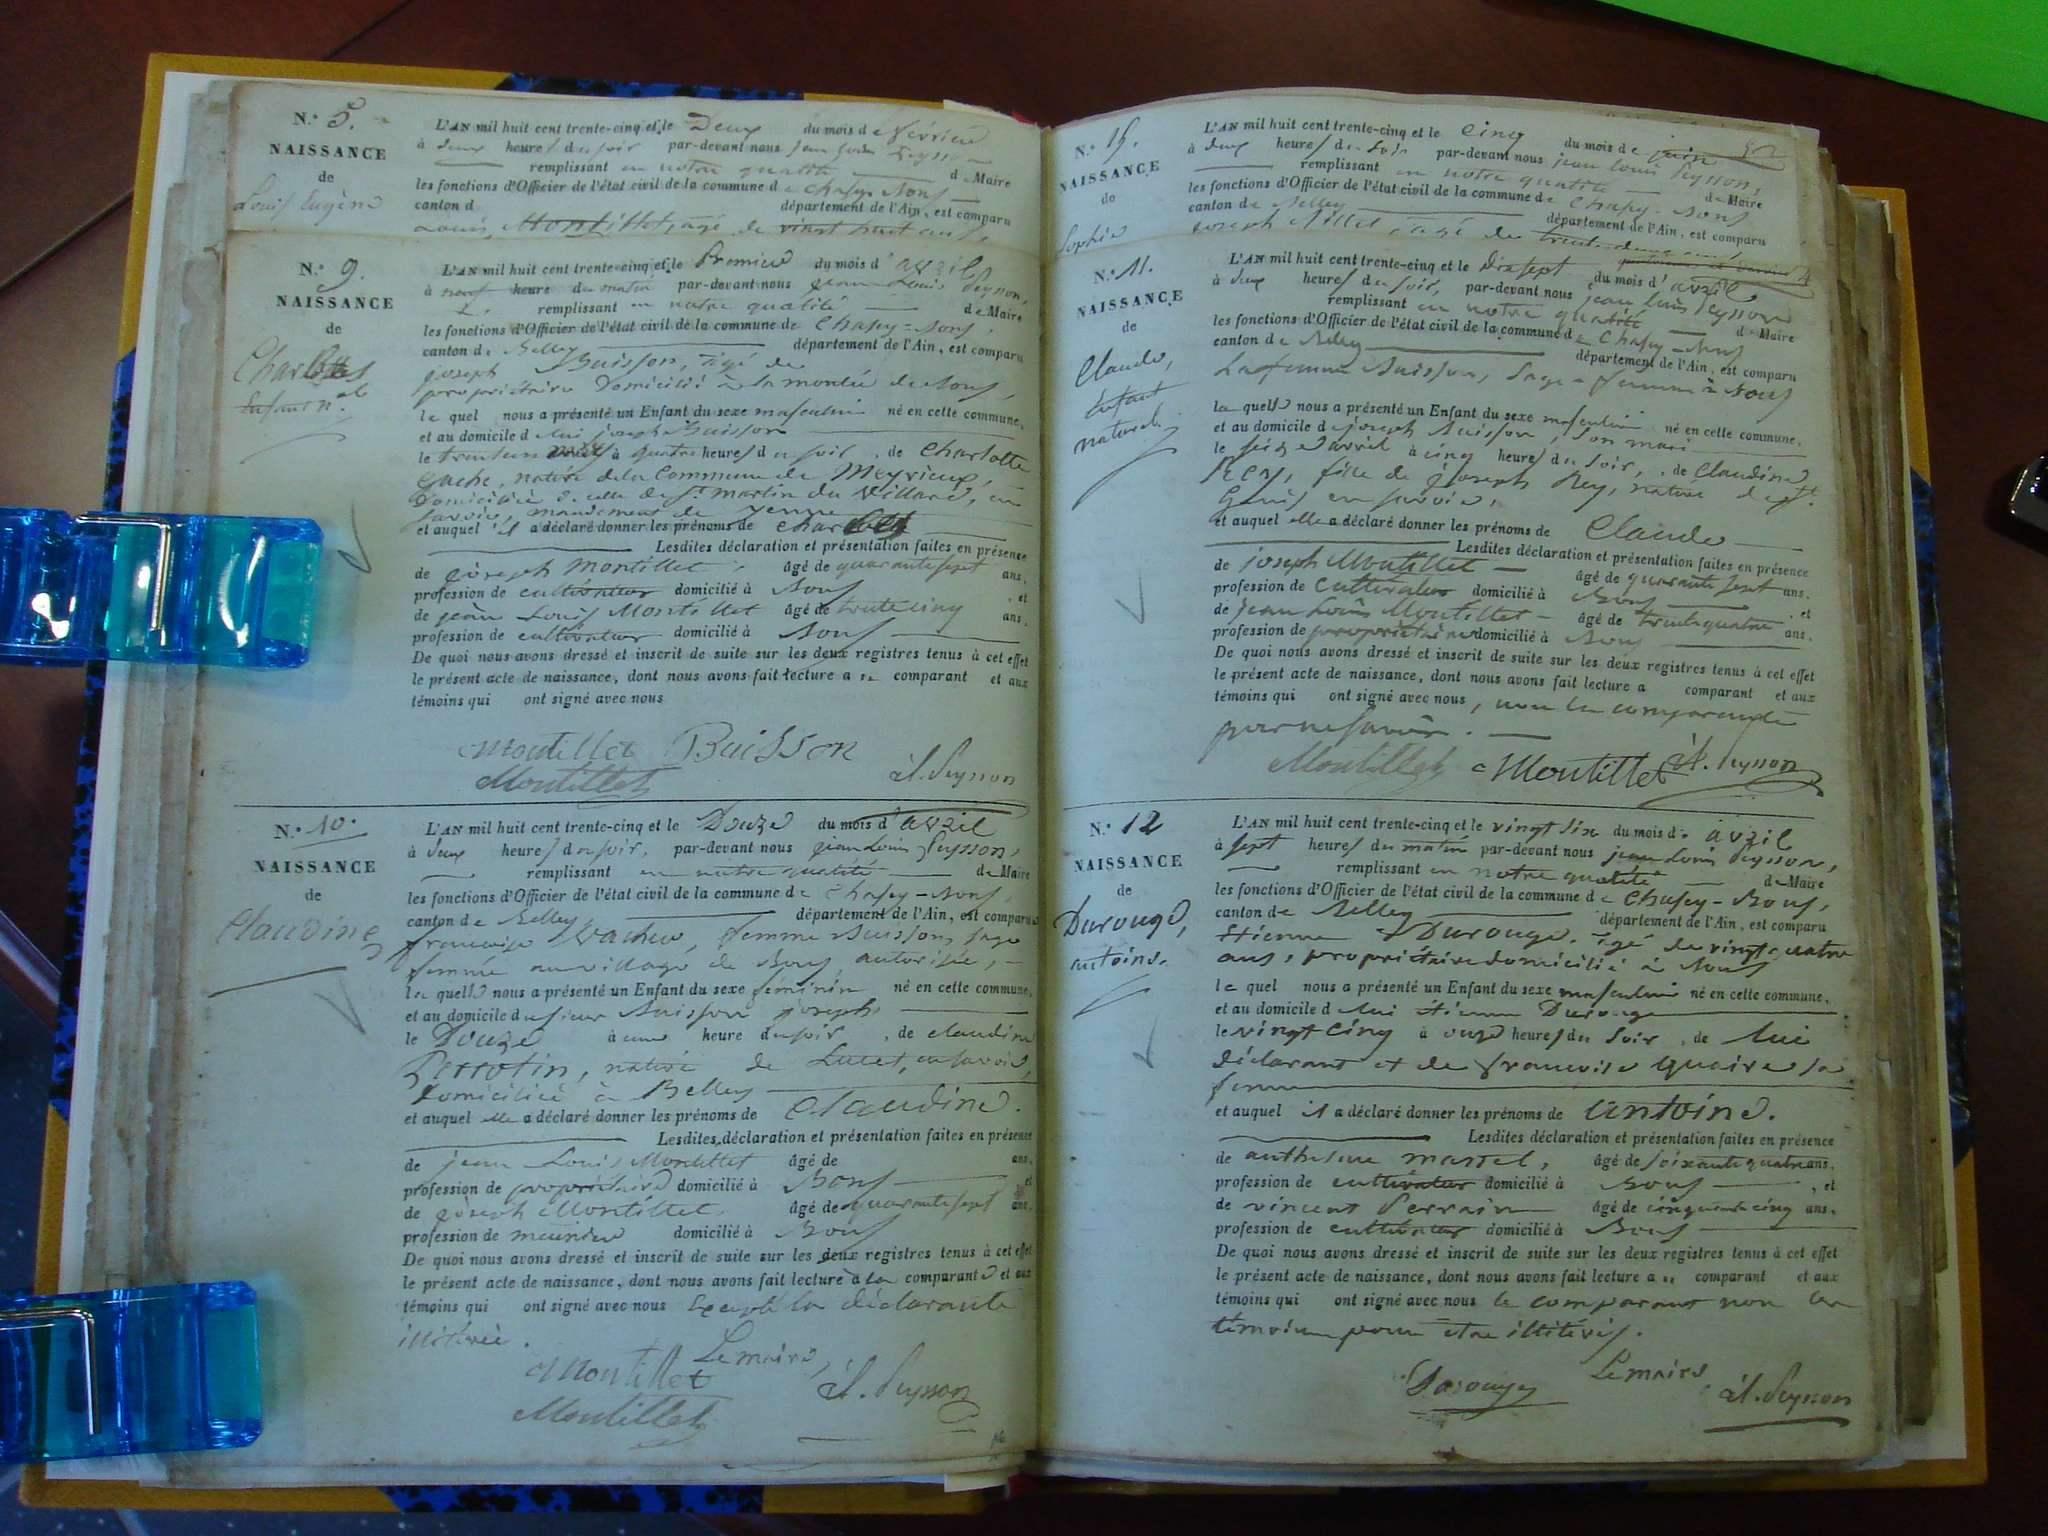 N.° 5.
NAISSANCE
de
Louis Eugène
L'AN mil huit cent trente-cinq et le Deux du mois de février
à deux heures du soir par-devant nous jean Louis Peysson
remplissant en notre qualité de Maire
les fonctions d'Officier de l'état civil de la commune de Chasey-Bons
canton d département de l'Ain, est comparu
Louis Montillet, agé de vingt huit ans,
N.° 9.
NAISSANCE
de
Enfant n.el
L'AN mil huit cent trente-cinq et le Premier du mois d'avril
à neuf heure du matin par-devant nous jean Louis Peysson,
remplissant en notre qualité de Maire
les fonctions d'Officier de l'état civil de la commune de Chasey=Bons.
canton de Belley département de l'Ain, est comparu
joseph Buisson, agé de
propriétaire Domicilié à la montée de Bons,
le quel nous a présenté un Enfant du sexe masculin né en cette commune,
et au domicile de lui joseph Buisson
le trente un mars à quatre heures du soir, de Charlotte
Gache, native de la Commune de Meyrieux,
Domiciliée à celle de St martin du Villard, en
Savoie, mandement de Yenne
et auquel il a déclaré donner les prénoms de
Lesdites déclaration et présentation faites en présence
de joseph Montillet, âgé de quarante sept ans,
profession de cultivateur domicilié à Bons, et
de jean Louis Montillet âgé de trente cinq ans,
profession de cultivateur domicilié à Bons
De quoi nous avons dressé et inscrit de suite sur les deux registres tenus à cet effet
le présent acte de naissance, dont nous avons fait lecture a u comparant et aux
témoins qui ont signé avec nous
Montillet Buisson
Montillet jL. Peysson
N.° 10.
NAISSANCE
de
Claudine
L'AN mil huit cent trente-cinq et le Douze du mois d'avril
à deux heures du soir, par-devant nous jean Louis Peysson,
remplissant en notre qualité de Maire
les fonctions d'Officier de l'état civil de la commune de Chasey-Bons,
canton de Belley département de l'Ain, est comparu
françoise Vacher, femme Buisson, sage
femme au village de Bons, autorisée,
la quelle nous a présenté un Enfant du sexe féminin né en cette commune,
et au domicile du sieur Buisson joseph
le Douze à une heure du soir, de claudine
Perrotin, native de Lucet, en savoie,
domiciliée à Belley
et auquel elle a déclaré donner les prénoms de Claudine.
Lesdites déclaration et présentation faites en présence
de jean Louis Montillet âgé de ans,
profession de propriétaire domicilié à Bons et
de joseph Montillet, âgé de quarante sept ans,
profession de meunier domicilié à Bons
De quoi nous avons dressé et inscrit de suite sur les deux registres tenus à cet effet
le présent acte de naissance, dont nous avons fait lecture à la comparante et aux
témoins qui ont signé avec nous Excepté la déclarante
illitérée.
Montillet Le maire,
Montillet jL. Peysson
N.° 15.
NAISSANCE
de
Sophie
L'AN mil huit cent trente-cinq et le Cinq du mois de juin
à deux heures du soir par-devant nous jean Louis Peysson,
remplissant en notre qualité de Maire
les fonctions d'Officier de l'état civil de la commune de Chasey-Bons
canton de Belley département de l'Ain, est comparu
joseph Billet, agé de trente deux ans,
N.° 11.
NAISSANCE
de
Claude,
Enfant
naturel.
L'AN mil huit cent trente-cinq et le Dix sept du mois d'avril
à deux heures du soir, par-devant nous jean Louis Peysson
remplissant en notre qualité de Maire
les fonctions d'Officier de l'état civil de la commune de Chasey-Bons
canton de Belley département de l'Ain, est comparu
La femme Buisson, sage=femme à Bons
la quelle nous a présenté un Enfant du sexe masculin né en cette commune,
et au domicile de joseph Buisson, son mari
le seize d'avril à cinq heures du soir, de Claudine
Rey, fille de joseph Rey, native de St
Genis en savoie,
et auquel elle a déclaré donner les prénoms de Claude
Lesdites déclaration et présentation faites en présence
de joseph Montillet âgé de quarante sept ans,
profession de cultivateur domicilié à Bons et
de jean Louis Montillet âgé de trente quatre ans,
profession de propriétaire domicilié à Bons
De quoi nous avons dressé et inscrit de suite sur les deux registres tenus à cet effet
le présent acte de naissance, dont nous avons fait lecture a comparant et aux
témoins qui ont signé avec nous, non la comparante
pour ne savoir.
Montillet Montillet jL. Peysson
N.° 12
NAISSANCE
de
Durouge,
antoine.
L'AN mil huit cent trente-cinq et le vingt six du mois d' avril
à sept heures du matin par-devant nous jean Louis Peysson,
remplissant en notre qualité de Maire
les fonctions d'Officier de l'état civil de la commune de Chasey-Bons,
canton de Belley département de l'Ain, est comparu
Etienne Durouge, agé de vingt quatre
ans, propriétaire domicilié à Bons
le quel nous a présenté un Enfant du sexe masculin né en cette commune,
et au domicile de lui Etienne Durouge
le vingt cinq à onze heures du soir, de lui
déclarant et de françoise Quaire sa
femme
et auquel il a déclaré donner les prénoms de Antoine.
Lesdites déclaration et présentation faites en présence
de anthelme martel, âgé de soixante quatre ans,
profession de cultivateur domicilié à Bons, et
de vincent Perrain âgé de cinquante cinq ans,
profession de cultivateur domicilié à Bons
De quoi nous avons dressé et inscrit de suite sur les deux registres tenus à cet effet
le présent acte de naissance, dont nous avons fait lecture a u comparant et aux
témoins qui ont signé avec nous le comparant non les
témoins pour être illitérés.
Durouge Le maire
jL. Peysson